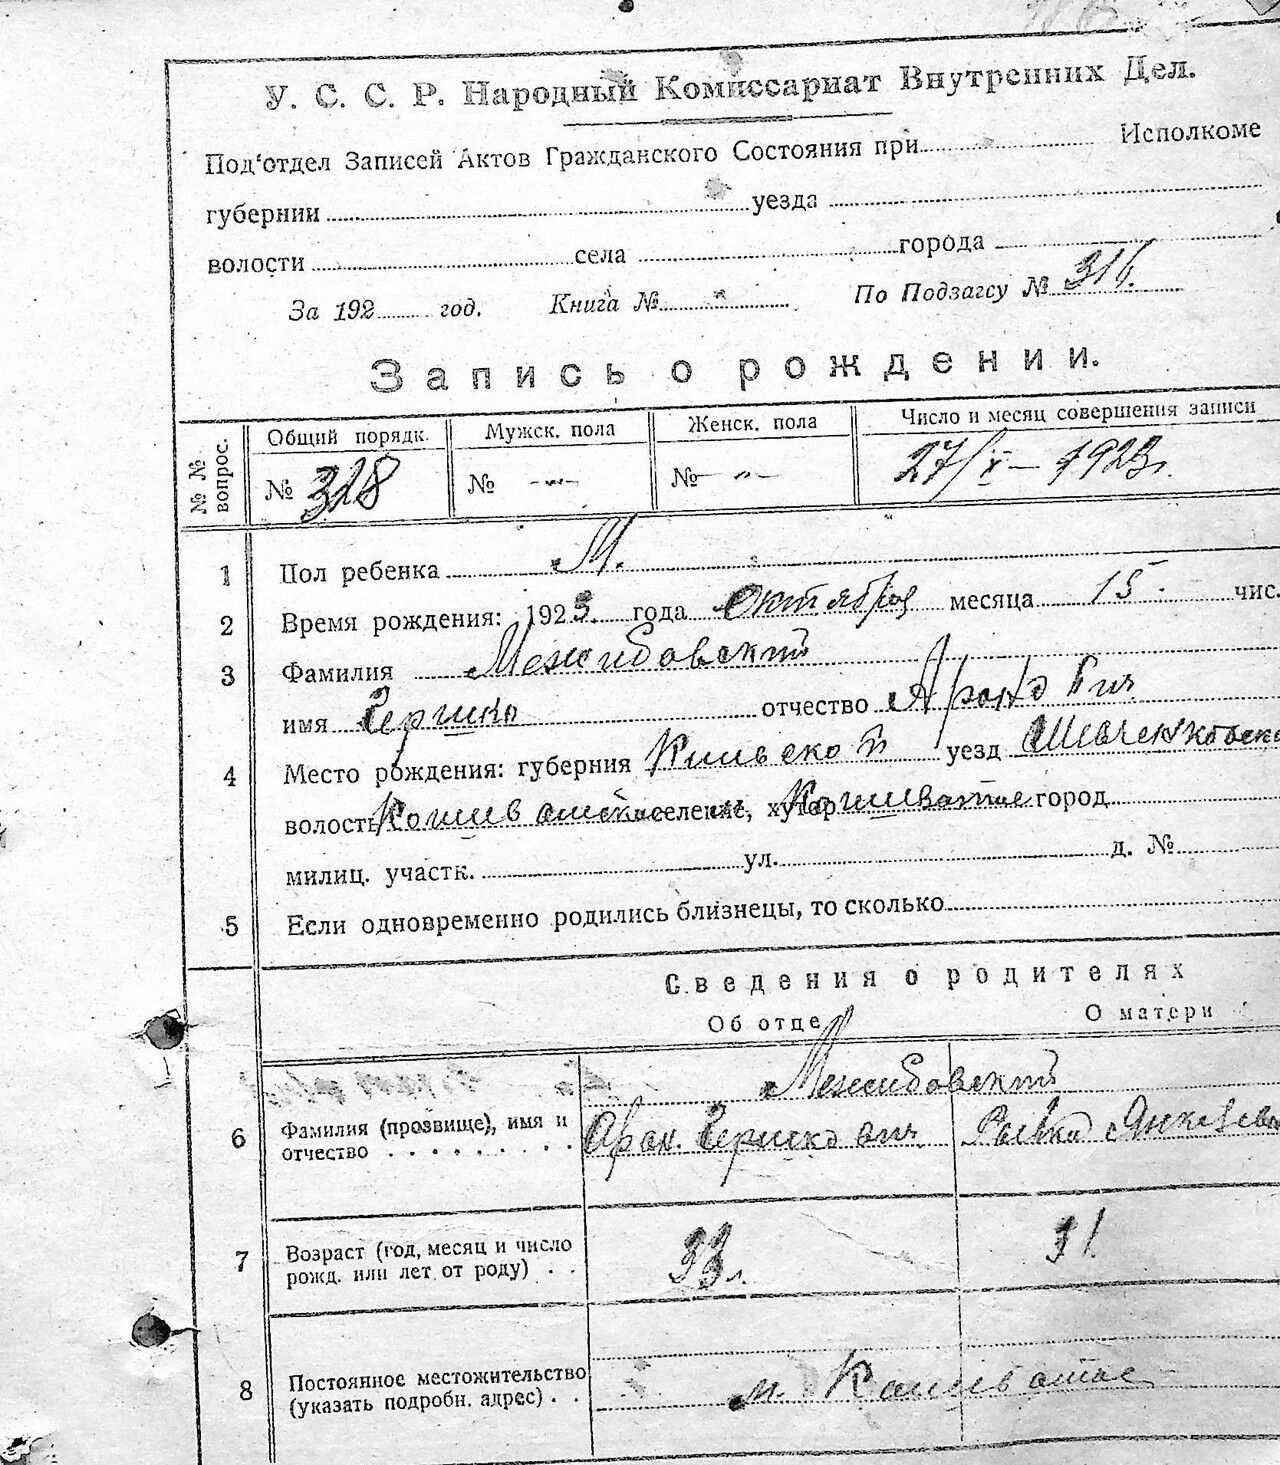 У. С. С. Р. Народный Комиссариат Внутренних Дел.
Под'отдел Записей Актов Гражданского Состояния при Исполкоме
губернии уезда
волости села города
За 192 год. Книга № По Подзагсу № 316.
Запись о рождении.
№ № вопрос. Общий порядк. Мужск. пола Женск. пола Число и месяц совершения записи
№ 328 № -"- № -"- 27/X - 1923г.
1 Пол ребенка М.
2 Время рождения: 1923. года Октября месяца 15. чис.
3 Фамилия Межибовский
имя Гершко отчество Аронович
4 Место рождения: губерния Киевской уезд Шевченковско
волость селение, хутор Кошеватое город
милиц. участк. ул. д. №
5 Если одновременно родились близнецы, то сколько
Сведения о родителях
Об отце О матери
Межибовский
6 Фамилия (прозвище), имя и отчество Арон. Гершкович Рывка Янкелев
7 Возраст (год, месяц и число рожд. или лет от роду) 33 г. 31
8 Постоянное местожительство (указать подробн. адрес) м. Кошеватое